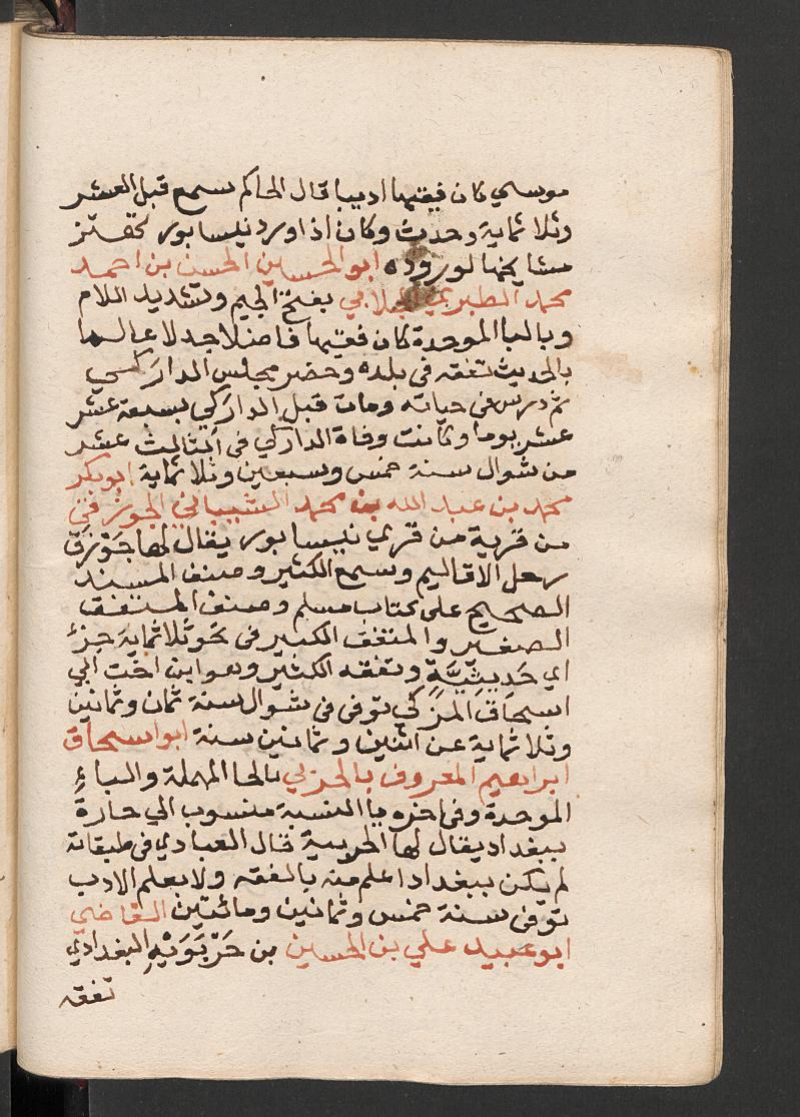 موسي كان فقيها اديبا قال الحاكم سمع قبل العشر
وثلاثماية وحدث وكان اذا ورد نيسابور تهتز
مشايخنا لوروده ابو الحسين الحسن بن احمد
محمد الطبري الجلابي بفتح الجيم وتشديد اللام
وبالبا الموحدة كان فقيها فاضلا جدلا عالما
بالحديث تفقه في بلده وحضر مجلس الداركي
ثم درس في حياته ومات قبل الداركي بسبعة عشر
عشر يوما وكانت وفاة الداركي في الثالث عشر
من شوال سنة خمس وسبعين وثلاثماية ابو بكر
محمد بن عبد الله بن محمد الشيباني الجوزقي
من قرية من قري نيسابور يقال لها جَوْزَق
رحل الاقاليم وسمع الكثير وصنف المسند
الصحيح علي كتاب مسلم وصنف المتفق
الصغير والمتفق الكبير في نحو ثلاثماية جزء
اي حَدِيثِيَّةٍ وتفقه الكثير وهو ابن اخت ابي
اسحاق المزكي توفي في شوال سنة ثمان وثمانين
وثلاثماية عن اثنين وثمانين سنة ابو اسحاق
ابراهيم المعروف بالحربي بالحا المهملة والباءِ
الموحدة وفي اخره يا النسبة منسوب الي حارةً
ببغداد يقال لها الحربية قال العبادي في طبقاته
لم يكن ببغداد اعلم منه بالفقه ولا بعلم الادب
توفي سنة خمس وثمانين ومائتين القاضي
ابو عبيد علي بن الحسين بن حَرْبَوَيْهِ البغدادي
تفقه